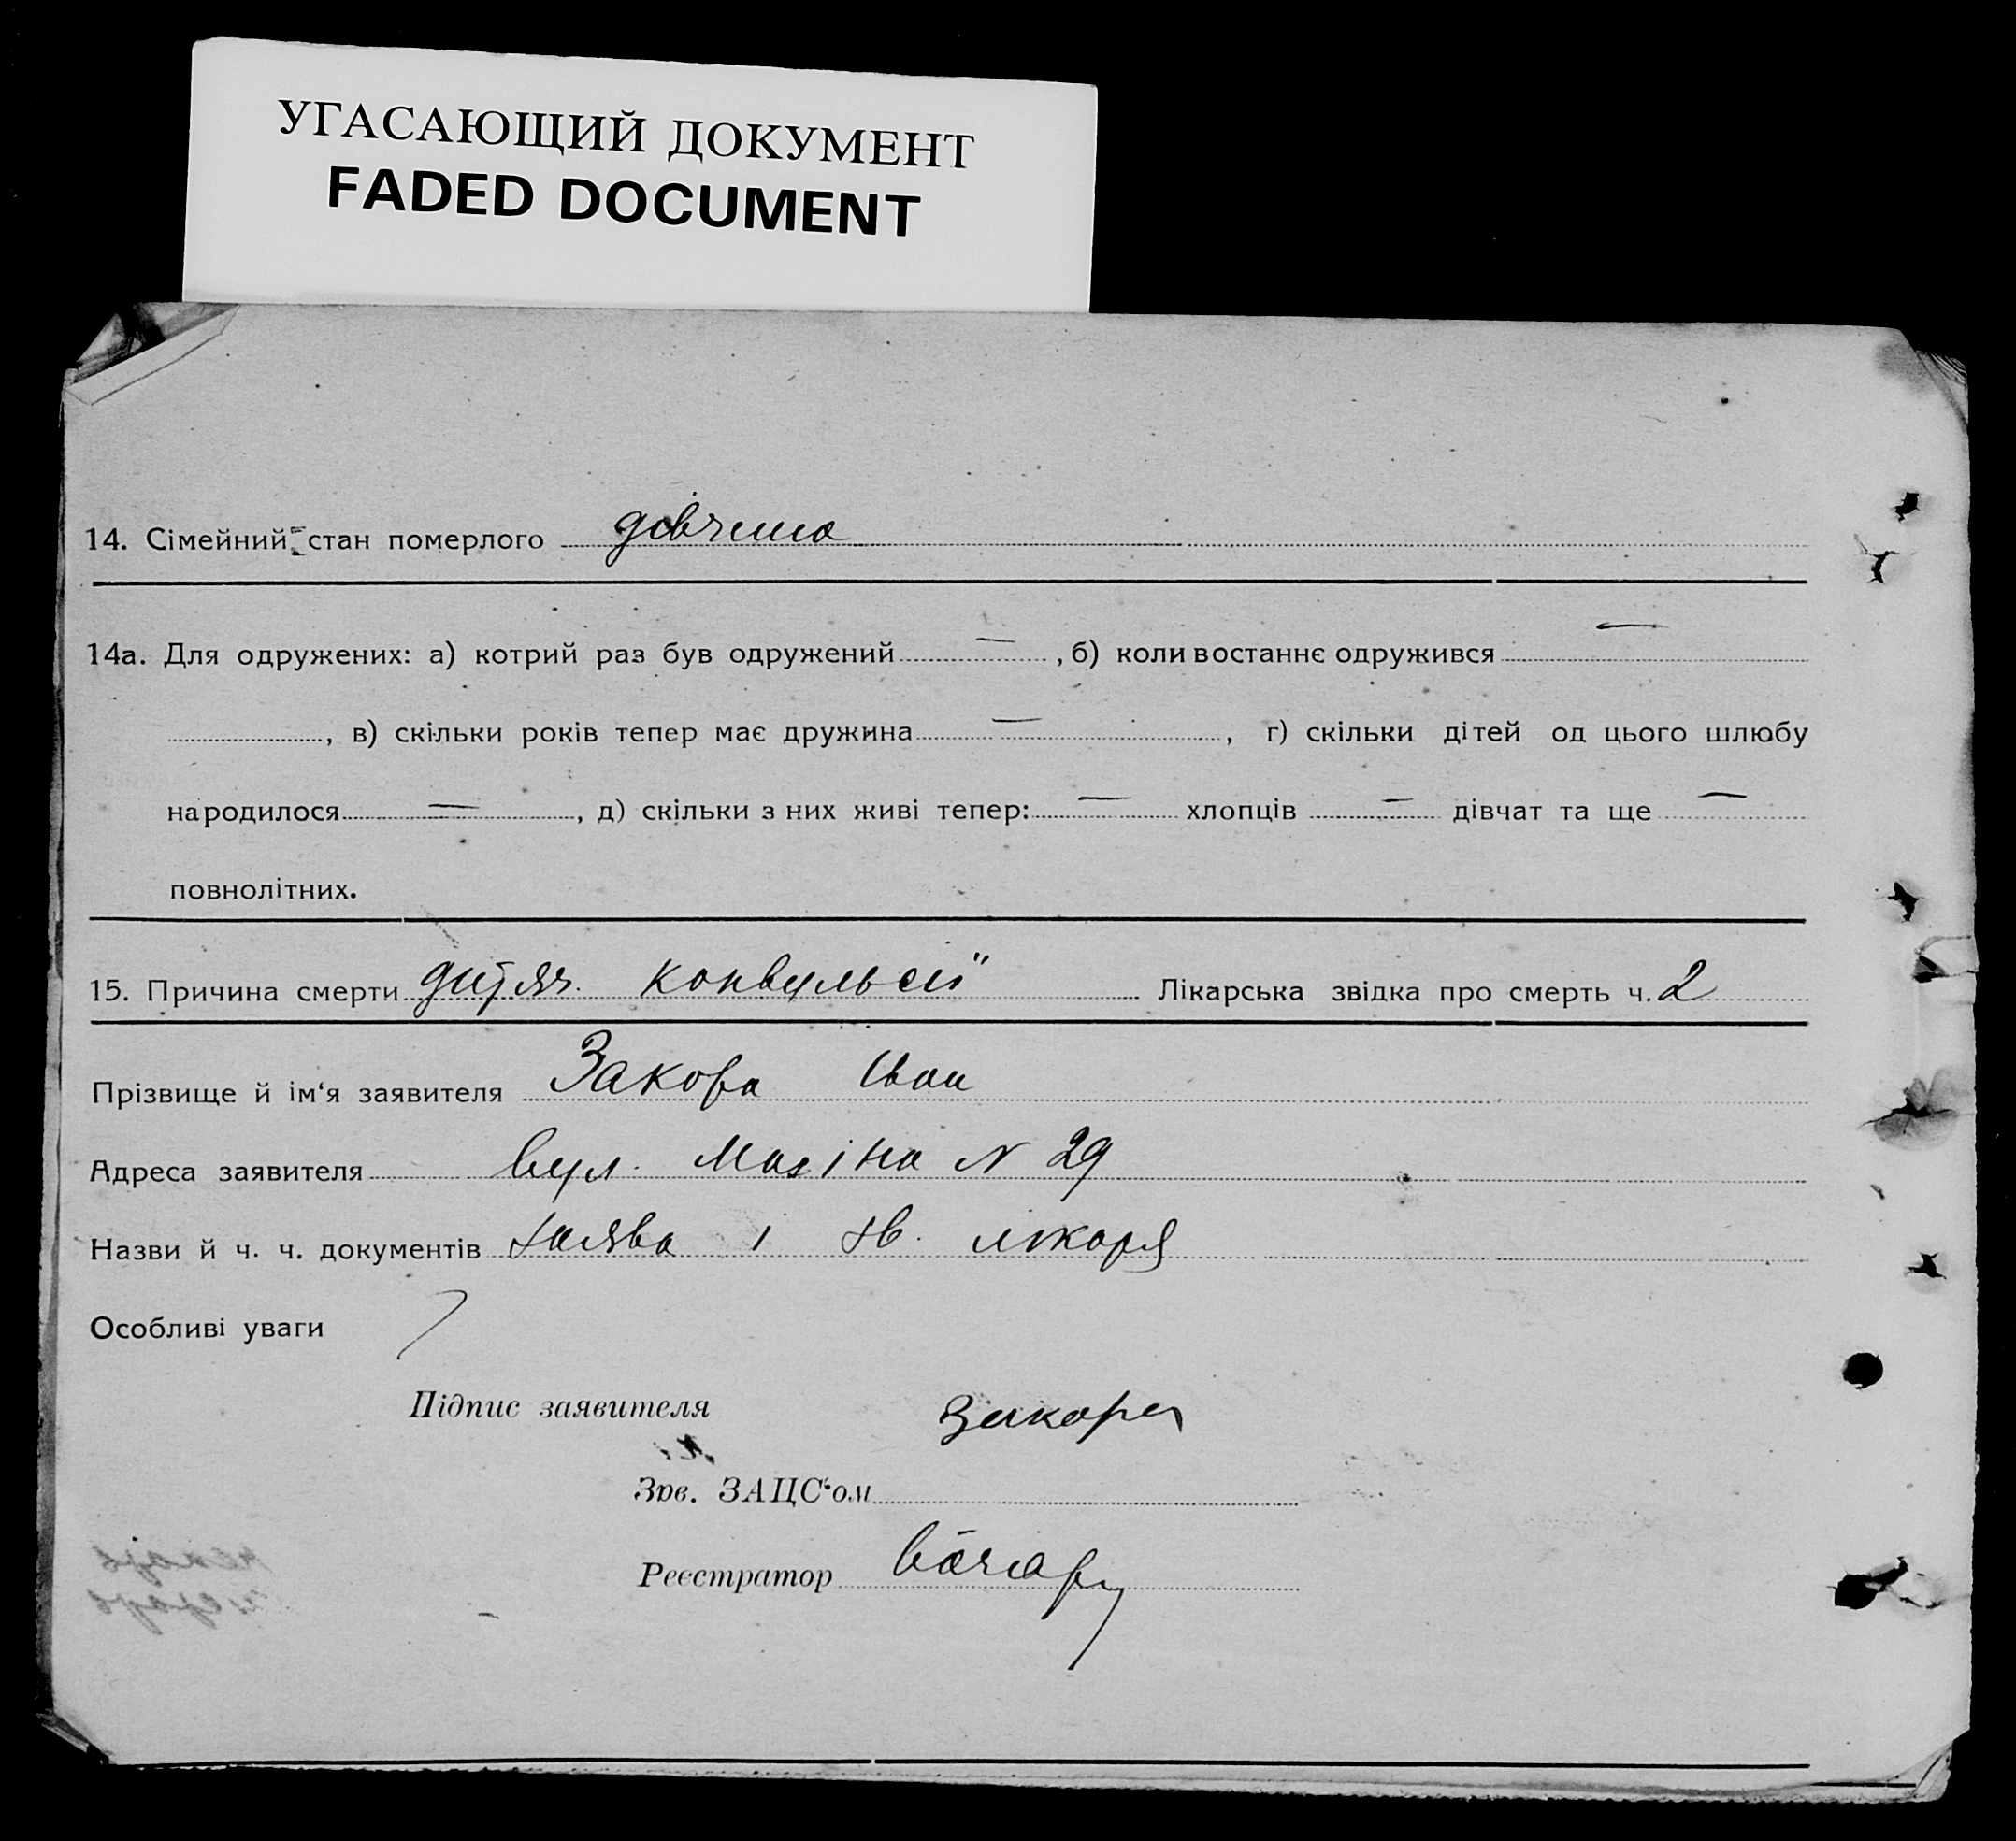 УГАСАЮЩИЙ ДОКУМЕНТ
FADED DOCUMENT
14. Сімейний стан померлого дівчина
14а. Для одружених: а) котрий раз був одружений — , б) коли востаннє одружився —
, в) скільки років тепер має дружина — , г) скільки дітей од цього шлюбу
народилося — , д) скільки з них живі тепер: — хлопців — дівчат та ще —
повнолітних.
15. Причина смерти дитяч. конвульсії Лікарська звідка про смерть ч. 2
Прізвище й ім‘я заявителя Закора Іван
Адреса заявителя вул. N 29
Назви й ч. ч. документів заява і зв. лікаря
Особливі уваги
Підпис заявителя Закора
Зав. ЗАЦС‘ом
Реєстратор